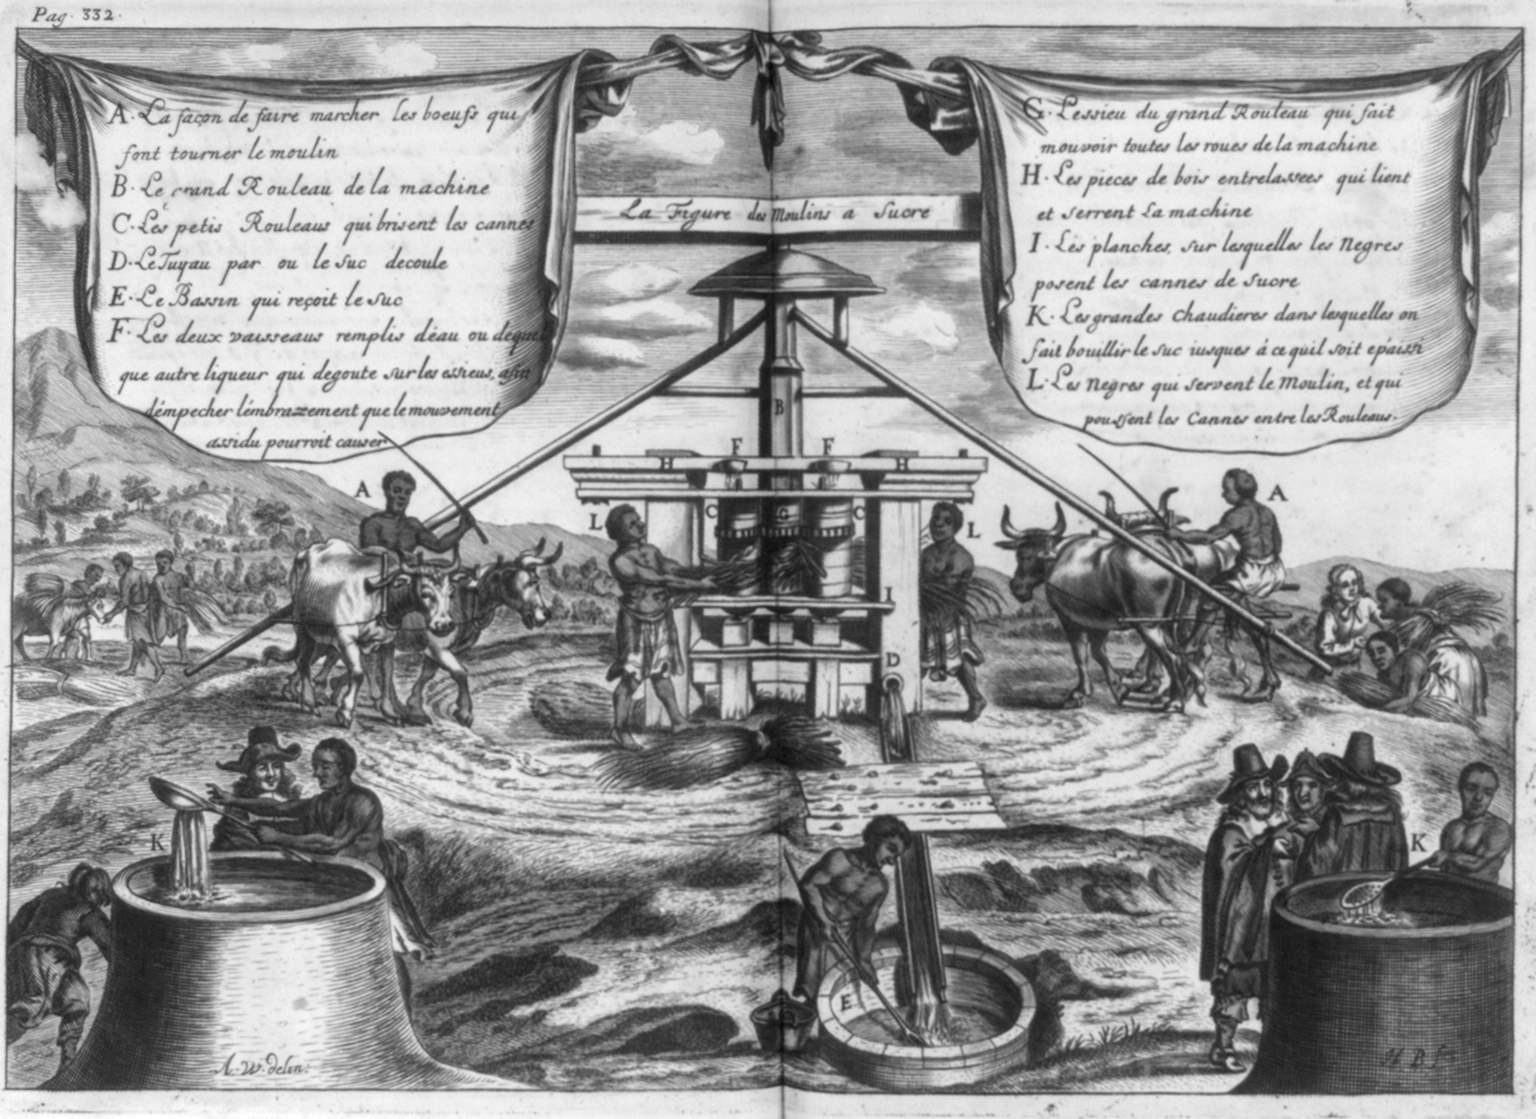 Pag. 332.
A. La façon de faire marcher les boeufs qui
font tourner le moulin
B. Le grand Rouleau de la machine
C. Les petis Rouleaus qui brisent les cannes
D. Le Tuyau par ou le suc decoule
E. Le Bassin qui reçoit le suc
F. Les deux vaisseaus remplis déau ou dequel
que autre liqueur qui degoute sur les essieus, afin
démpecher lémbrazement que le mouvement
assidu pourroit causer
La Figure des Moulins a Sucre
G. Léssieu du grand Rouleau qui fait
mouvoir toutes les roues de la machine
H. Les pieces de bois entrelassees qui lient
et serrent La machine
I. Les planches, sur lesquelles les Negres
posent les cannes de sucre
K. Les grandes Chaudieres dans lesquelles on
fait bouillir le suc iusques á ce quil soit epaissi
L. Les Negres qui servent le Moulin, et qui
poussent les Cannes entre les Rouleaus.
B
F F
H H
A A
C G C
L L
I
D
K K
E
A. W. delin: